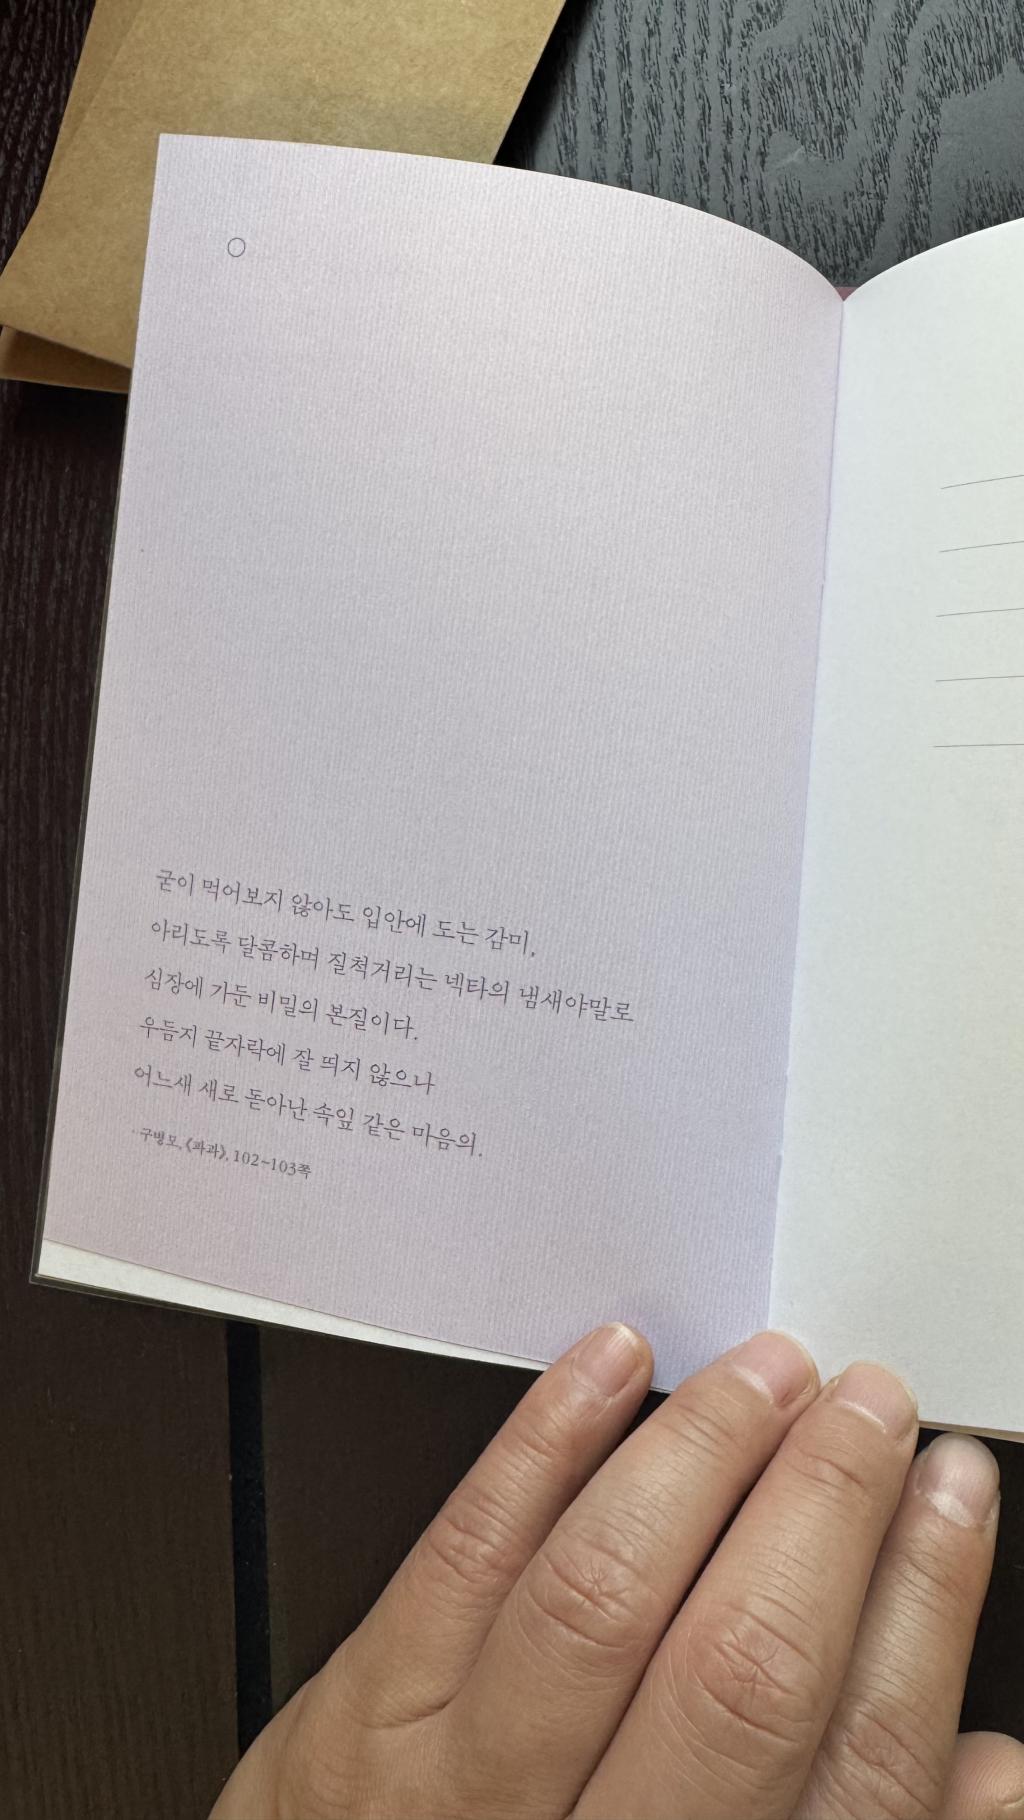 굳이 먹어보지 않아도 입안에 도는 감미,
아리도록 달콤하며 질척거리는 넥타의 냄새야말로
심장에 가둔 비밀의 본질이다.
우듬지 끝자락에 잘 띄지 않으나
어느새 새로 돋아난 속잎 같은 마음의.
- 구병모, 《파과》, 102~103쪽